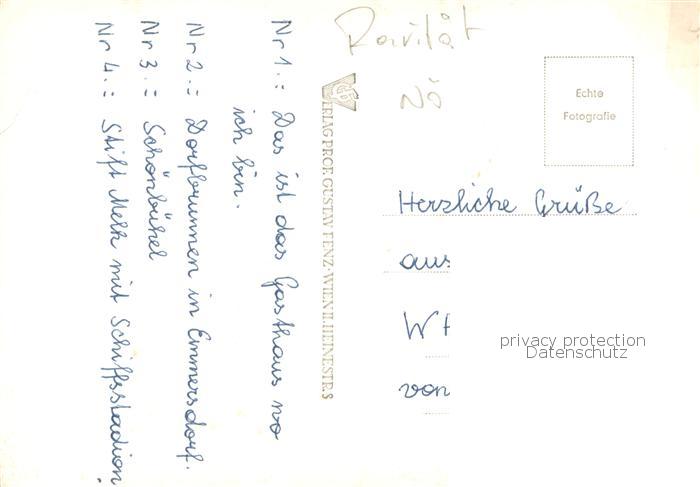 Nr 1.: Das ist das Gasthaus wo
ich bin.
Nr 2.: Dorfbrunnen in Emmersdorf.
Nr 3.: Schönbühel
Nr 4.: Stift Melk mit Schiffsstadion.
VERLAG PROF. GUSTAV FENZ·WIEN II. HEINESTR. 8
Rarität
NÖ
Echte
Fotografie
Herzliche Grüße
aus
W
von
privacy protection
Datenschutz